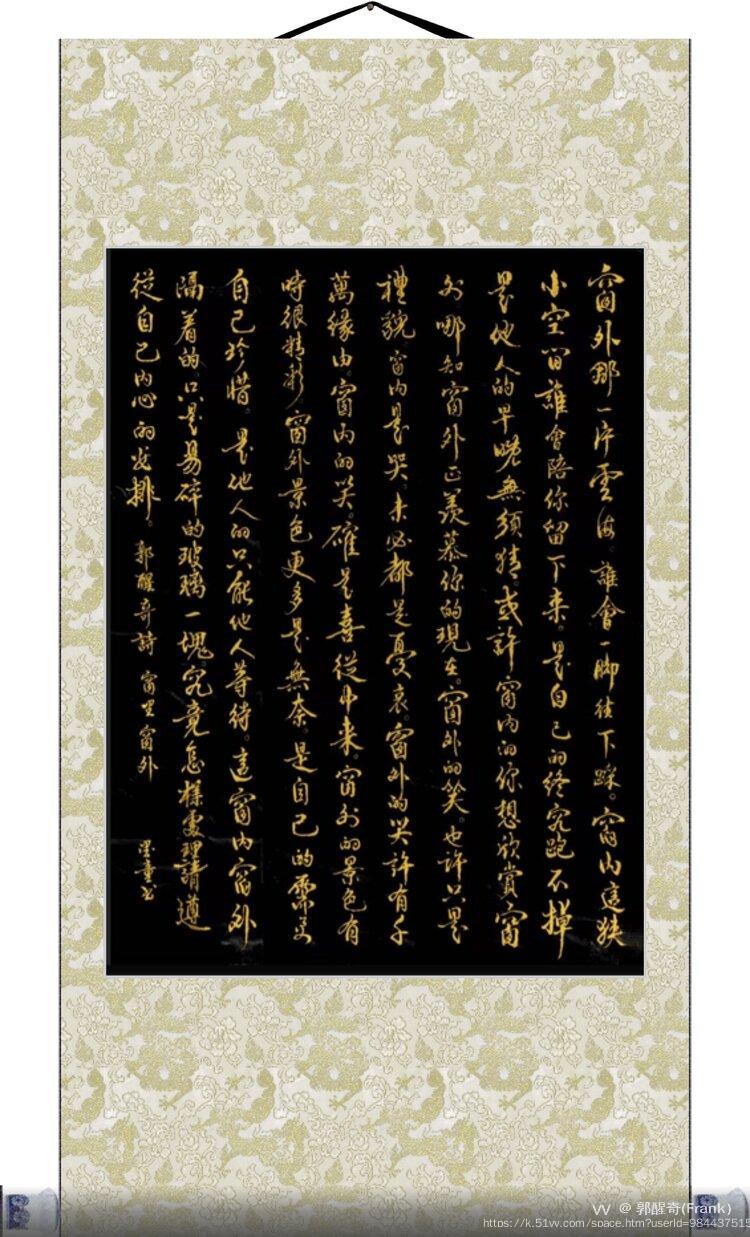 窗外那一片雲海。誰會一脚往下踩。窗内這狹
小空間誰會陪你留下来。是自己的终究跑不掉
是他人的早晚無須猜。或許窗内的你想欣賞窗
外。哪知窗外正羡慕你的現在。窗外的笑。也許只是
禮貌。窗内是哭。未必都是憂哀。窗外的哭許有千
萬緣由。窗内的笑。確是喜從中来。窗外的景色有
時很精彩。窗外景色更多是無奈。是自己的需要
自己珍惜。是他人的只能他人等待。這窗内窗外
隔着的。只是易碎的玻璃一塊。究竟怎樣處理請遵
從自己内心的安排。郭醒奇詩 窗里窗外 墨童书
VV @ 郭醒奇(Frank)
https://k.51vv.com/space.htm?userId=984437515